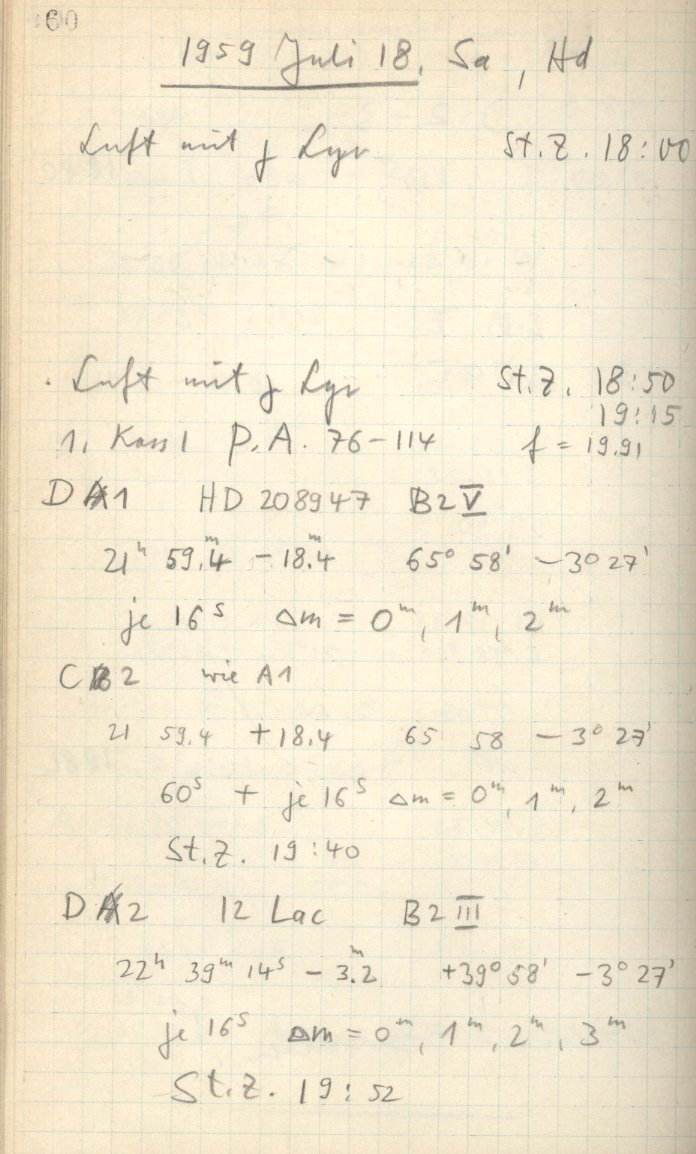 60
1959 Juli 18, Sa, Hd
Luft mit γ Lyr St.Z. 18:00
Luft mit γ Lyr St.Z. 18:50
19:15
1. Kass 1 P.A. 76-114 f = 19.91
D A1 HD 208947 B2V
21ʰ 59.ᵐ4 - 18.ᵐ4 65° 58' - 3° 27'
je 16ˢ Δm = 0ᵐ, 1ᵐ, 2ᵐ
C B2 wie A1
21 59.4 + 18.4 65 58 - 3° 27'
60ˢ + je 16ˢ Δm = 0ᵐ, 1ᵐ, 2ᵐ
St.Z. 19:40
D A2 12 Lac B2 III
22ʰ 39ᵐ 14ˢ - 3.ᵐ2 +39° 58' - 3° 27'
je 16ˢ Δm = 0ᵐ, 1ᵐ, 2ᵐ, 3ᵐ
St.Z. 19:52